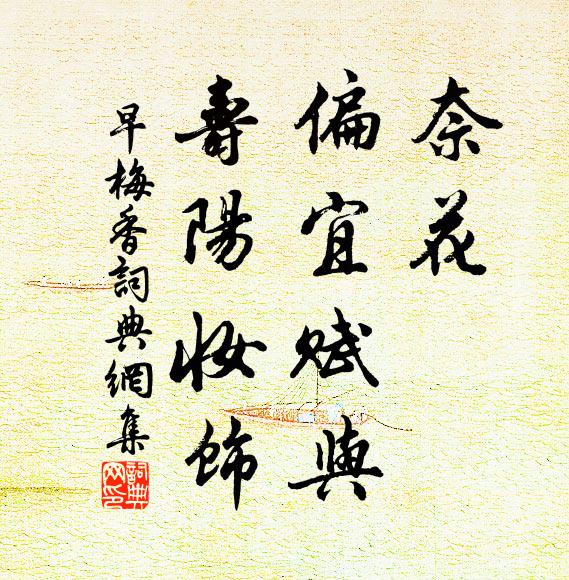 奈花
偏宜賦與
壽陽妝飾
早梅香詞典網集
詞典
网印